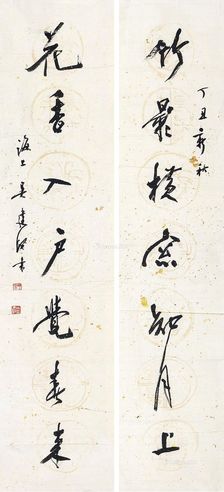 竹影横窗知月上
丁丑新秋
花香入户觉春来
海上吴建贤书